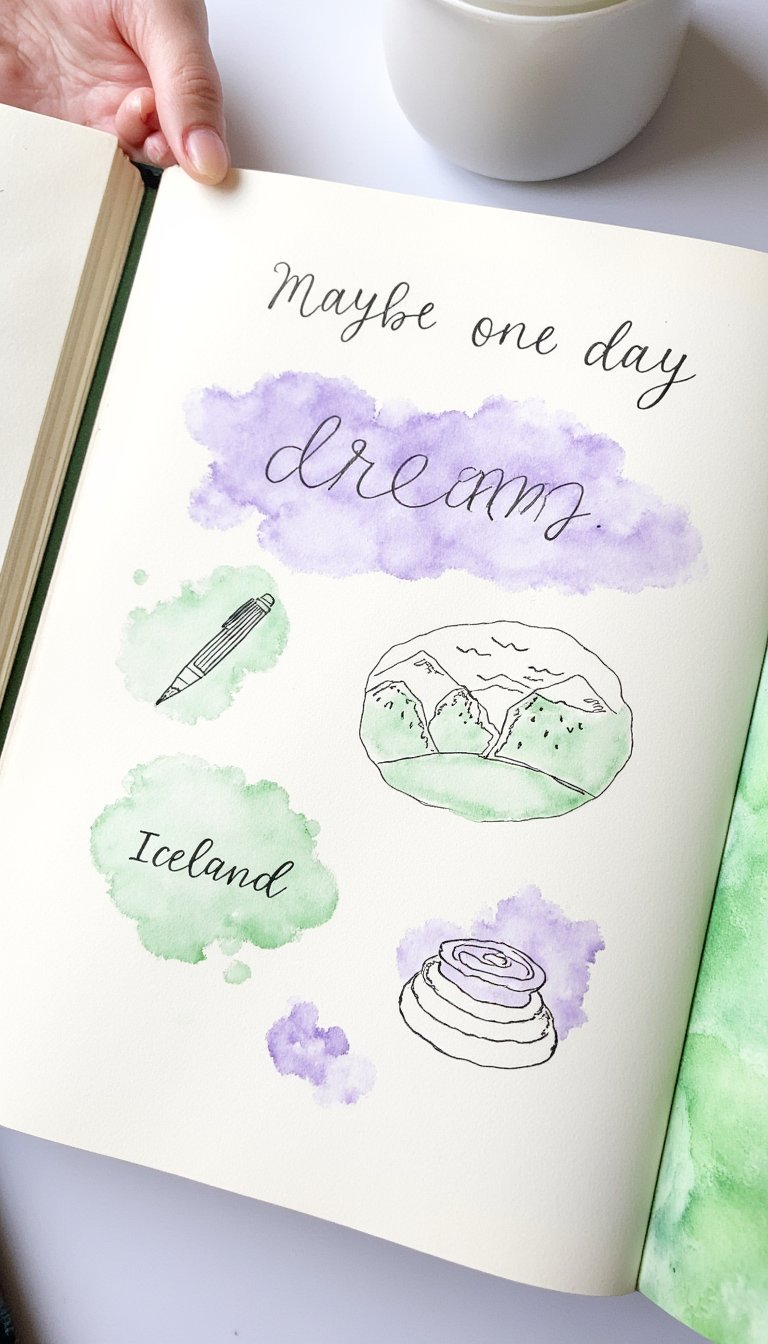 Maybe one day
dreams.
Iceland